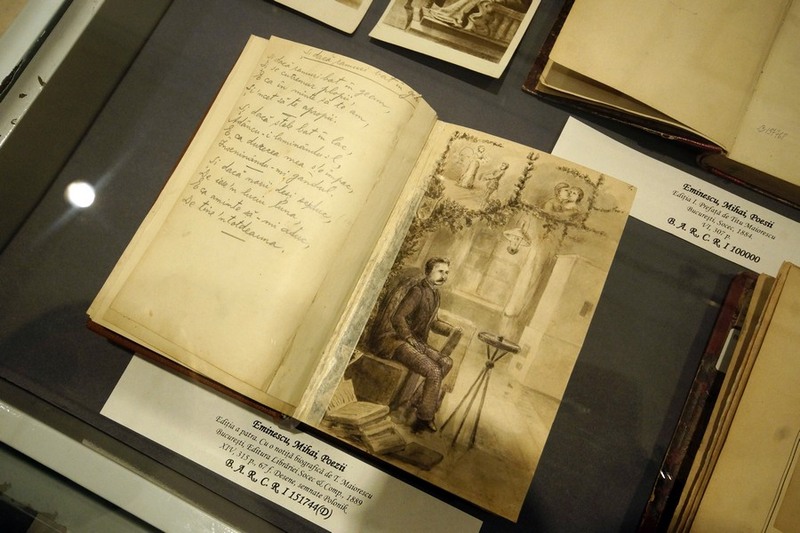 Și dacă ramuri bat în
Și dacă ramuri bat în geam,
Și se cutremur plopii,
E ca în minte să te am,
Și încet să te apropii.
Și dacă stele bat în lac,
Adâncu-i luminându-l,
E ca durerea mea s'o împac,
Inseninându-mi gândul.
Și dacă norii deși se duc,
De ese în luciu luna,
E ca aminte să-mi aduc,
De tine 'ntotdeauna.
Eminescu, Mihai, Poezii
Ediția a patra. Cu o notiță biografică de T. Maiorescu
București, Editura Librăriei Socec & Comp., 1889
XIV, 315 p., 67 f. Desene, semnate Polonik
B. A. R., C. R. I 151744(D)
Eminescu, Mihai, Poesii
Ediția I. Prefață de Titu Maiorescu
București, Socec, 1884.
VI, 307 p.
B. A. R., C. R. I 100000